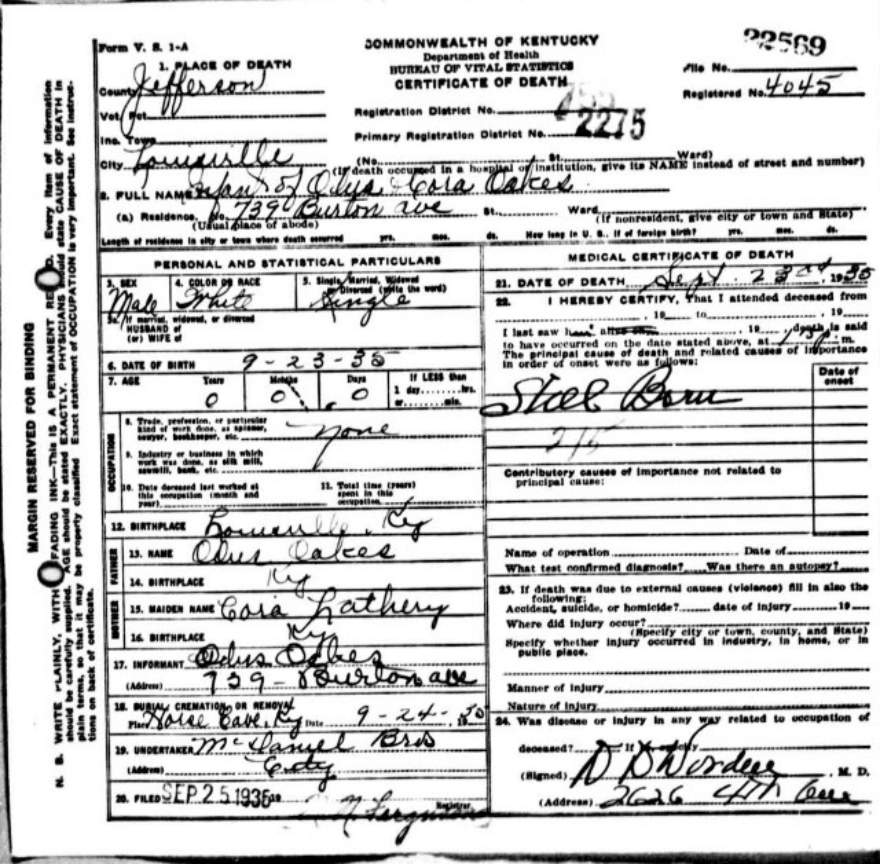 Form V. S. 1-A
COMMONWEALTH OF KENTUCKY
Department of Health
BUREAU OF VITAL STATISTICS
CERTIFICATE OF DEATH
22569
File No.
Registered No. 4045
1. PLACE OF DEATH
County Jefferson
Vot. Pct.
Inc. Town
City Louisville
Registration District No.
Primary Registration District No. 2275
(No. St. Ward)
(If death occurred in a hospital or institution, give its NAME instead of street and number)
2. FULL NAME Infant of Odus Cora Oakes
(a) Residence. No. 739 Burton ave St. Ward
(Usual place of abode)
(If nonresident, give city or town and State)
Length of residence in city or town where death occurred yrs. mos. ds. How long in U. S., if of foreign birth? yrs. mos. ds.
PERSONAL AND STATISTICAL PARTICULARS
3. SEX
Male
4. COLOR OR RACE
White
5. Single, Married, Widowed
or Divorced (write the word)
Single
5a. If married, widowed, or divorced
HUSBAND of
(or) WIFE of
6. DATE OF BIRTH 9-23-35
7. AGE Years Months Days If LESS than
0 0 0 1 day........hrs.
or........min.
OCCUPATION
8. Trade, profession, or particular
kind of work done, as spinner,
sawyer, bookkeeper, etc. none
9. Industry or business in which
work was done, as silk mill,
sawmill, bank, etc.
10. Date deceased last worked at
this occupation (month and
year)
11. Total time (years)
spent in this
occupation
12. BIRTHPLACE Louisville Ky
FATHER
13. NAME Odus Oakes
14. BIRTHPLACE Ky
MOTHER
15. MAIDEN NAME Cora Lathery
16. BIRTHPLACE Ky
17. INFORMANT Odus Oakes
(Address) 739 - Burton ave
18. BURIAL, CREMATION, OR REMOVAL
Place Horse Cave, Ky Date 9-24-, 1935
19. UNDERTAKER McDaniel Bros
(Address) City
20. FILED SEP 25 1935 19
Ferguson
Registrar
MEDICAL CERTIFICATE OF DEATH
21. DATE OF DEATH Sept. 23rd, 1935
22. I HEREBY CERTIFY, That I attended deceased from
, 19 to , 19
I last saw h alive on , 19 death is said
to have occurred on the date stated above, at m.
The principal cause of death and related causes of importance
in order of onset were as follows:
Date of
onset
Still Born
Contributory causes of importance not related to
principal cause:
Name of operation Date of
What test confirmed diagnosis? Was there an autopsy?
23. If death was due to external causes (violence) fill in also the
following:
Accident, suicide, or homicide? date of injury 19
Where did injury occur?
(Specify city or town, county, and State)
Specify whether injury occurred in industry, in home, or in
public place.
Manner of injury
Nature of injury
24. Was disease or injury in any way related to occupation of
deceased? If so, specify
(Signed) , M. D.
(Address) 2626 4th Ave
MARGIN RESERVED FOR BINDING
N. B. WRITE PLAINLY, WITH UNFADING INK—THIS IS A PERMANENT RECORD. Every item of information
should be carefully supplied. AGE should be stated EXACTLY. PHYSICIANS should state CAUSE OF DEATH in
plain terms, so that it may be properly classified. Exact statement of OCCUPATION is very important. See instruc-
tions on back of certificate.